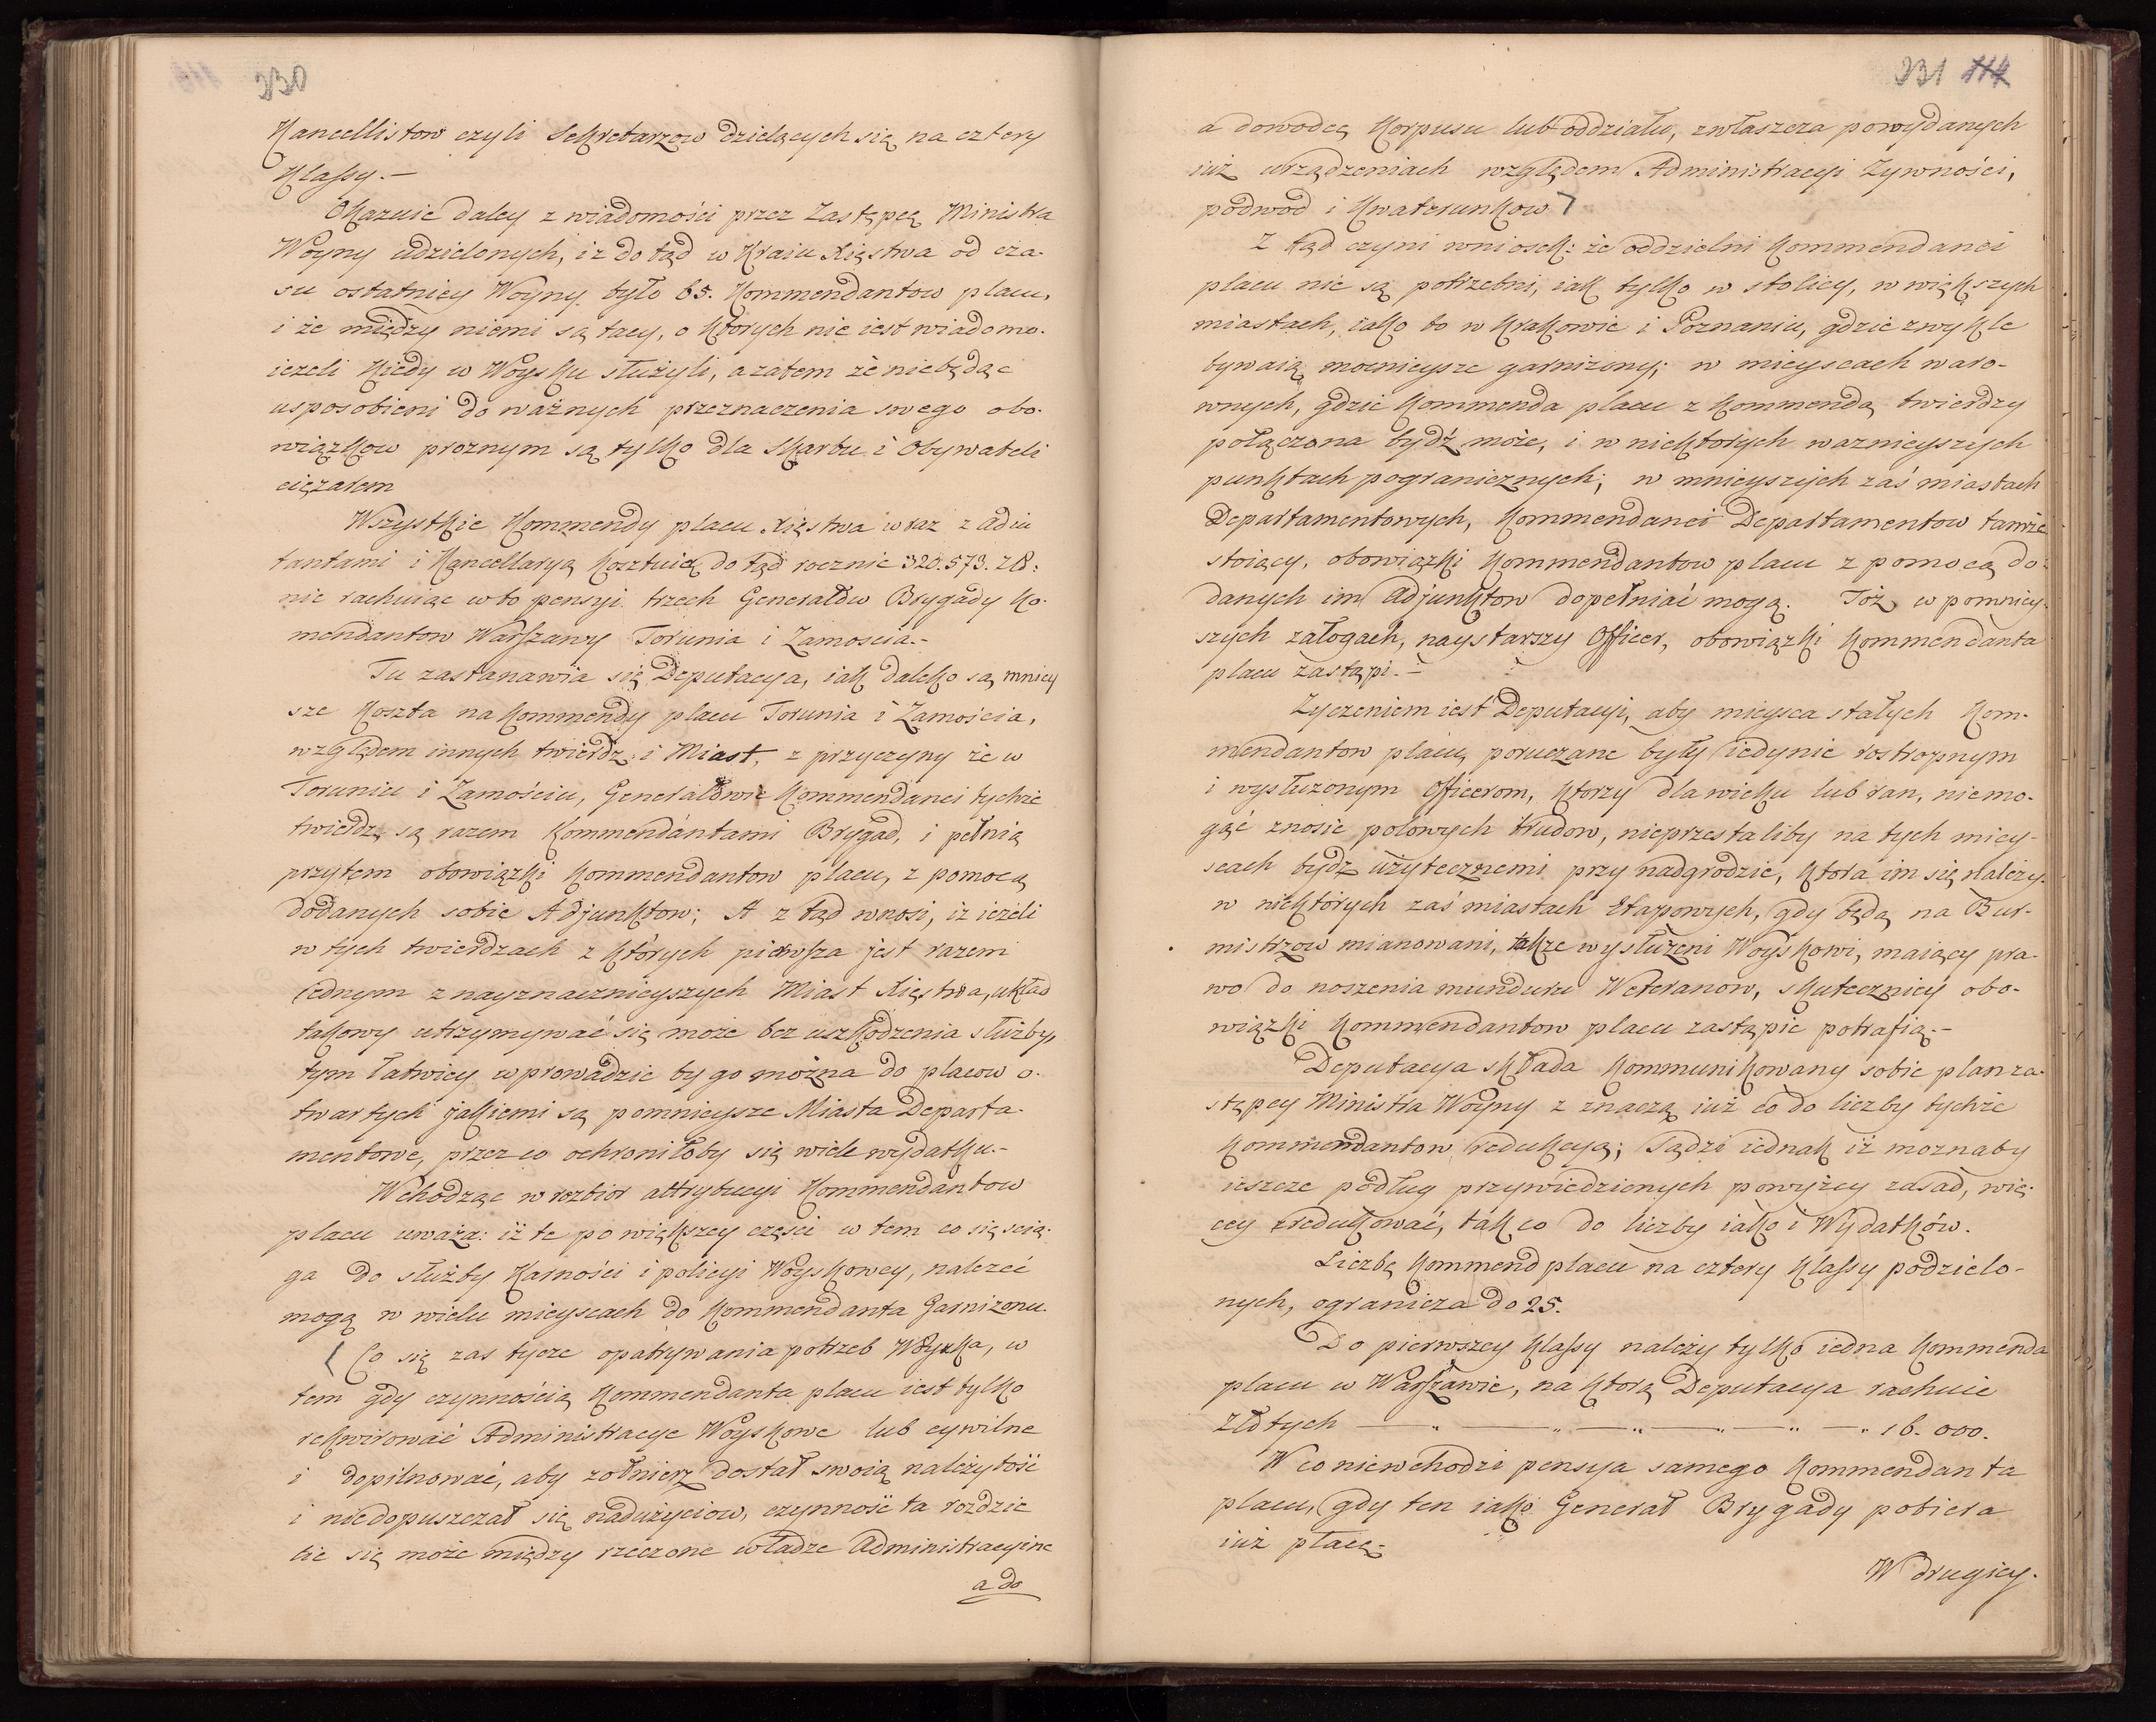 330
Kancellistow czyli Sekretarzow dzielących się na cztery
Klassy.—
Okazuie daley z wiadomości przez Zastępcę Ministra
Woyny udzielonych, iż do tąd w Kraiu Xięstwa od cza-
su ostatniey Woyny było 65. Kommendantow placu,
i że między niemi są tacy, o ktorych nie iest wiadomo.
ieżeli kiedy w Woysku służyli, a zatem że niebędąc
usposobieni do ważnych przeznaczenia swego obo-
wiązkow proznym są tylko dla Skarbu i Obywateli
ciężarem
Wszystkie Kommendy placu Xięstwa wraz z Adiu
tantami i Kancellaryą kosztuią do tąd rocznie 320.573. zł:
nie rachuiąc w to pensyi trzech Generałów Brygady Ko-
mendantow Warszawy Torunia i Zamoscia.-
Tu zastanawia się Deputacya, iak daleko są mniey
sze koszta na Kommendy placu Torunia i Zamościa,
względem innych twierdz i Miast, z przyczyny że w
Toruniu i Zamościu, Generałowie Kommendanci tychże
twierdz są razem Kommendántami Brygad, i pełnią
przytem obowiązki Kommendantow placu, z pomocą
dodanych sobie Adjunktow; A z tąd wnosi, iż ieżeli
w tych twierdzach z których pierwsza jest razem
iednym z nayznacznieyszych Miast Xięstwa, układ
takowy utrzymywać się może bez uszkodzenia służby,
tym łatwiey wprowadzic by go można do placow o-
twartych jakiemi są pomnieysze Miasta Departa-
mentowe, przez co ochroniłoby się wiele wydatku.-
Wchodząc w rozbior attrybucyi Kommendantow
placu uważa: iż te po większey części w tem co się scią-
ga do służby Karności i policyi Woyskowey, nalezeć
mogą w wielu mieyscach do Kommendanta Garnizonu.
Co się zas tycze opatrywania potrzeb Woyska, w
tem gdy czynnością Kommendanta placu iest tylko
rekwirować Administracye Woyskowe lub cywilne
i dopilnować, aby żołnierz dostał swoią należytość
i niedopuszczał się nadużyciow, czynność ta rozdzie
lic się może między rzeczone władze Administracyine
a do
331 114
a dowodcę Korpusu lub oddziału, zwłaszcza po wydanych
iuż urządzeniach względem Administracyi Zywności,
podwod i Kwaterunkow
Z tąd czyni wniosek: że oddzielni Kommendanci
placu nie są potrzebni, iak tylko w stolicy, w większych
miastach, iako to w Krakowie i Poznaniu, gdzie zwykle
bywaią mocnieysze garnizony; w mieyscach waro-
wnych, gdzie Kommenda placu z Kommendą twierdzy
połączona bydź może, i w niektorych waznieyszych
punktach pogranicznych; w mnieyszych zaś miastach
Departamentowych, Kommendanci Departamentow tamże
stoiący, obowiązki Kommendantow placu z pomocą do-
danych im Adjunktow dopełniać mogą. Toż w pomniey-
szych załogach, naystarszy Officer, obowiązki Kommendanta
placu zastąpi.—
Zyczeniem iest Deputacyi, aby mieysca stałych Kom-
mendantow placu, poruczane były iedynie rostropnym
i wysłuzonym Officerom, ktorzy dla wieku lub ran, niemo-
gąć znosic polowych trudow, nieprzestaliby na tych miey-
scach bydz użytecznemi przy nadgrodzie, ktora im się należy.
w niektórych zaś miastach Etapowych, gdy będą na Bur-
mistrzow mianowani, także wysłużeni Woyskowi, maiący pra-
wo do noszenia munduru Weteranow, skuteczniey obo-
wiązki Kommendantow placu zastąpic potrafią.—
Deputacya składa Kommunikowany sobie plan za-
stępcy Ministra Woyny z znaczą iuż co do liczby tychże
Kommendantow redukcyą; Sądzi iednak iż moznaby
ieszcze podług przywiedzionych powyżey zasad, wię-
cey zredukować, tak co do liczby iako i Wydatków.
Liczbę Kommend placu na cztery Klassy podzielo-
nych, ogranicza do 25.
Do pierwszey Klassy należy tylko iedna Kommenda
placu w Warszawie, na ktorą Deputacya rachuie
Złotych — „ — „ — „ — „ — „ 16.000.
W co niewchodzi pensya samego Kommendanta
placu, gdy ten iako Generał Brygady pobiera
iuż płacę.
W drugiey.